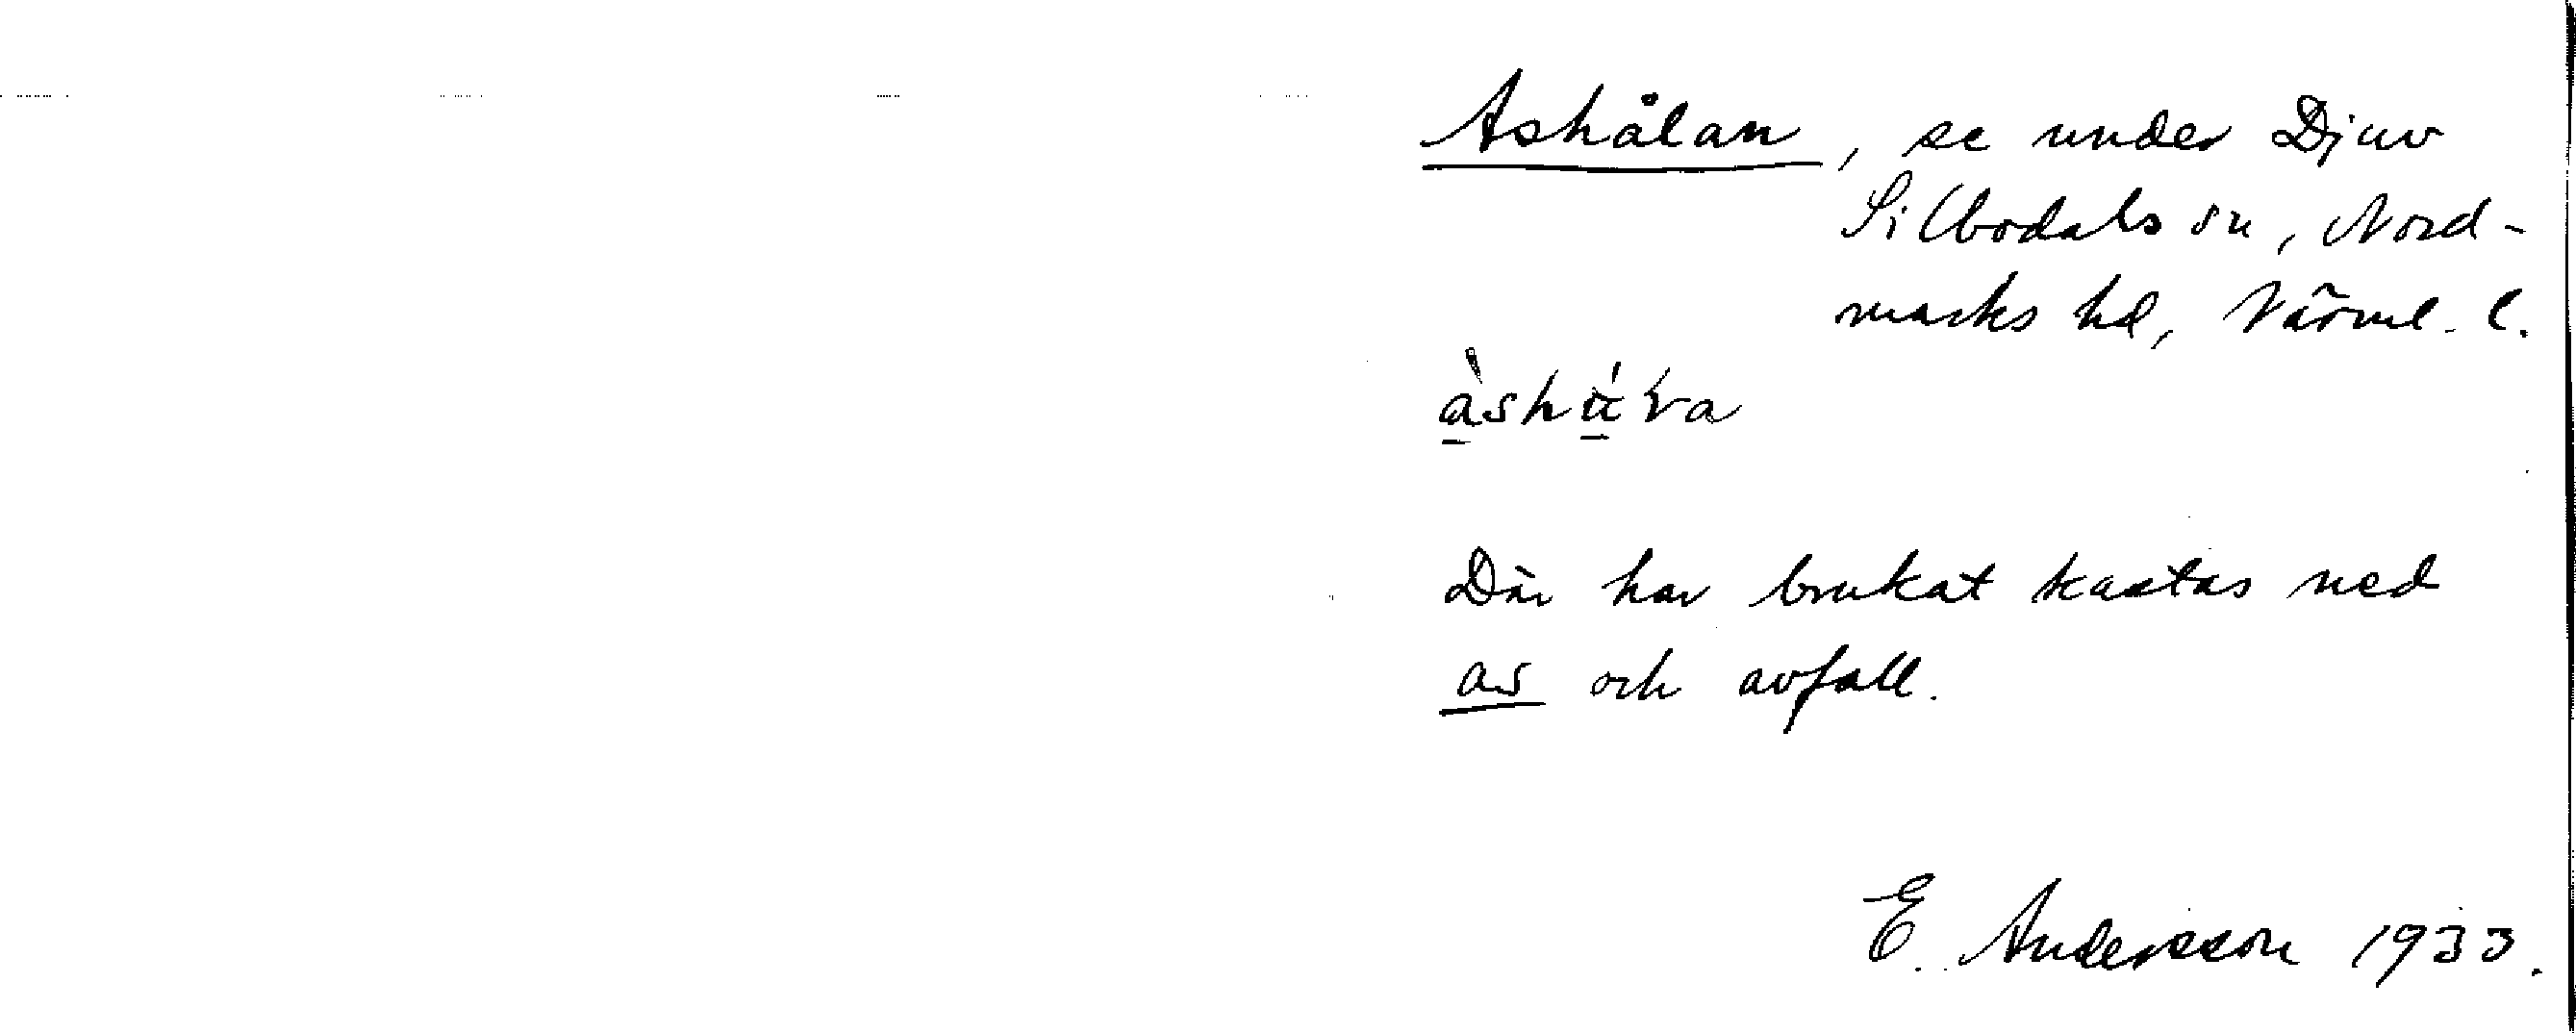 Ashålan, se under Djuv
Silbodals sn, Nord-
marks hd, Värml. l.
Där har brukat kastas ned
as och avfall.
E. Andersson 1933.